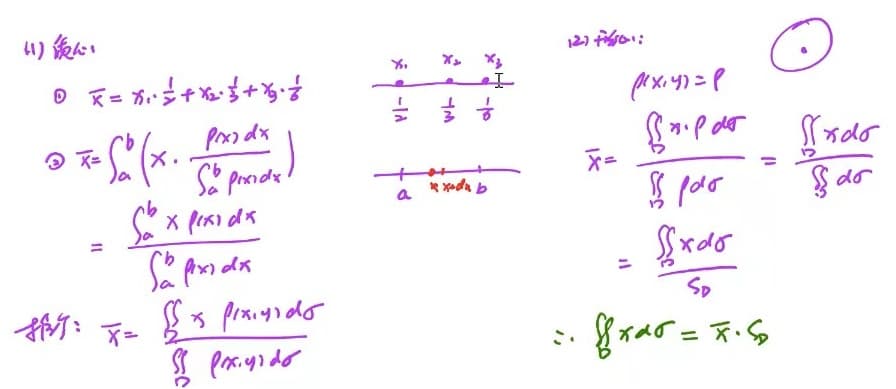 (1) 质心:
① x̄ = x₁·1/2 + x₂·1/3 + x₃·1/6
② x̄ = ∫ₐᵇ (x · ρ(x)dx / ∫ₐᵇ ρ(x)dx)
= ∫ₐᵇ x ρ(x) dx / ∫ₐᵇ ρ(x) dx
推广: x̄ = ∬_D x ρ(x,y)dσ / ∬_D ρ(x,y)dσ
x₁ x₂ x₃
1/2 1/3 1/6
a x x+dx b
(2) 形心:
ρ(x,y) = ρ
x̄ = ∬_D x·ρ dσ / ∬_D ρdσ = ∬_D xdσ / ∬_D dσ
= ∬_D xdσ / S_D
∴ ∬_D xdσ = x̄·S_D